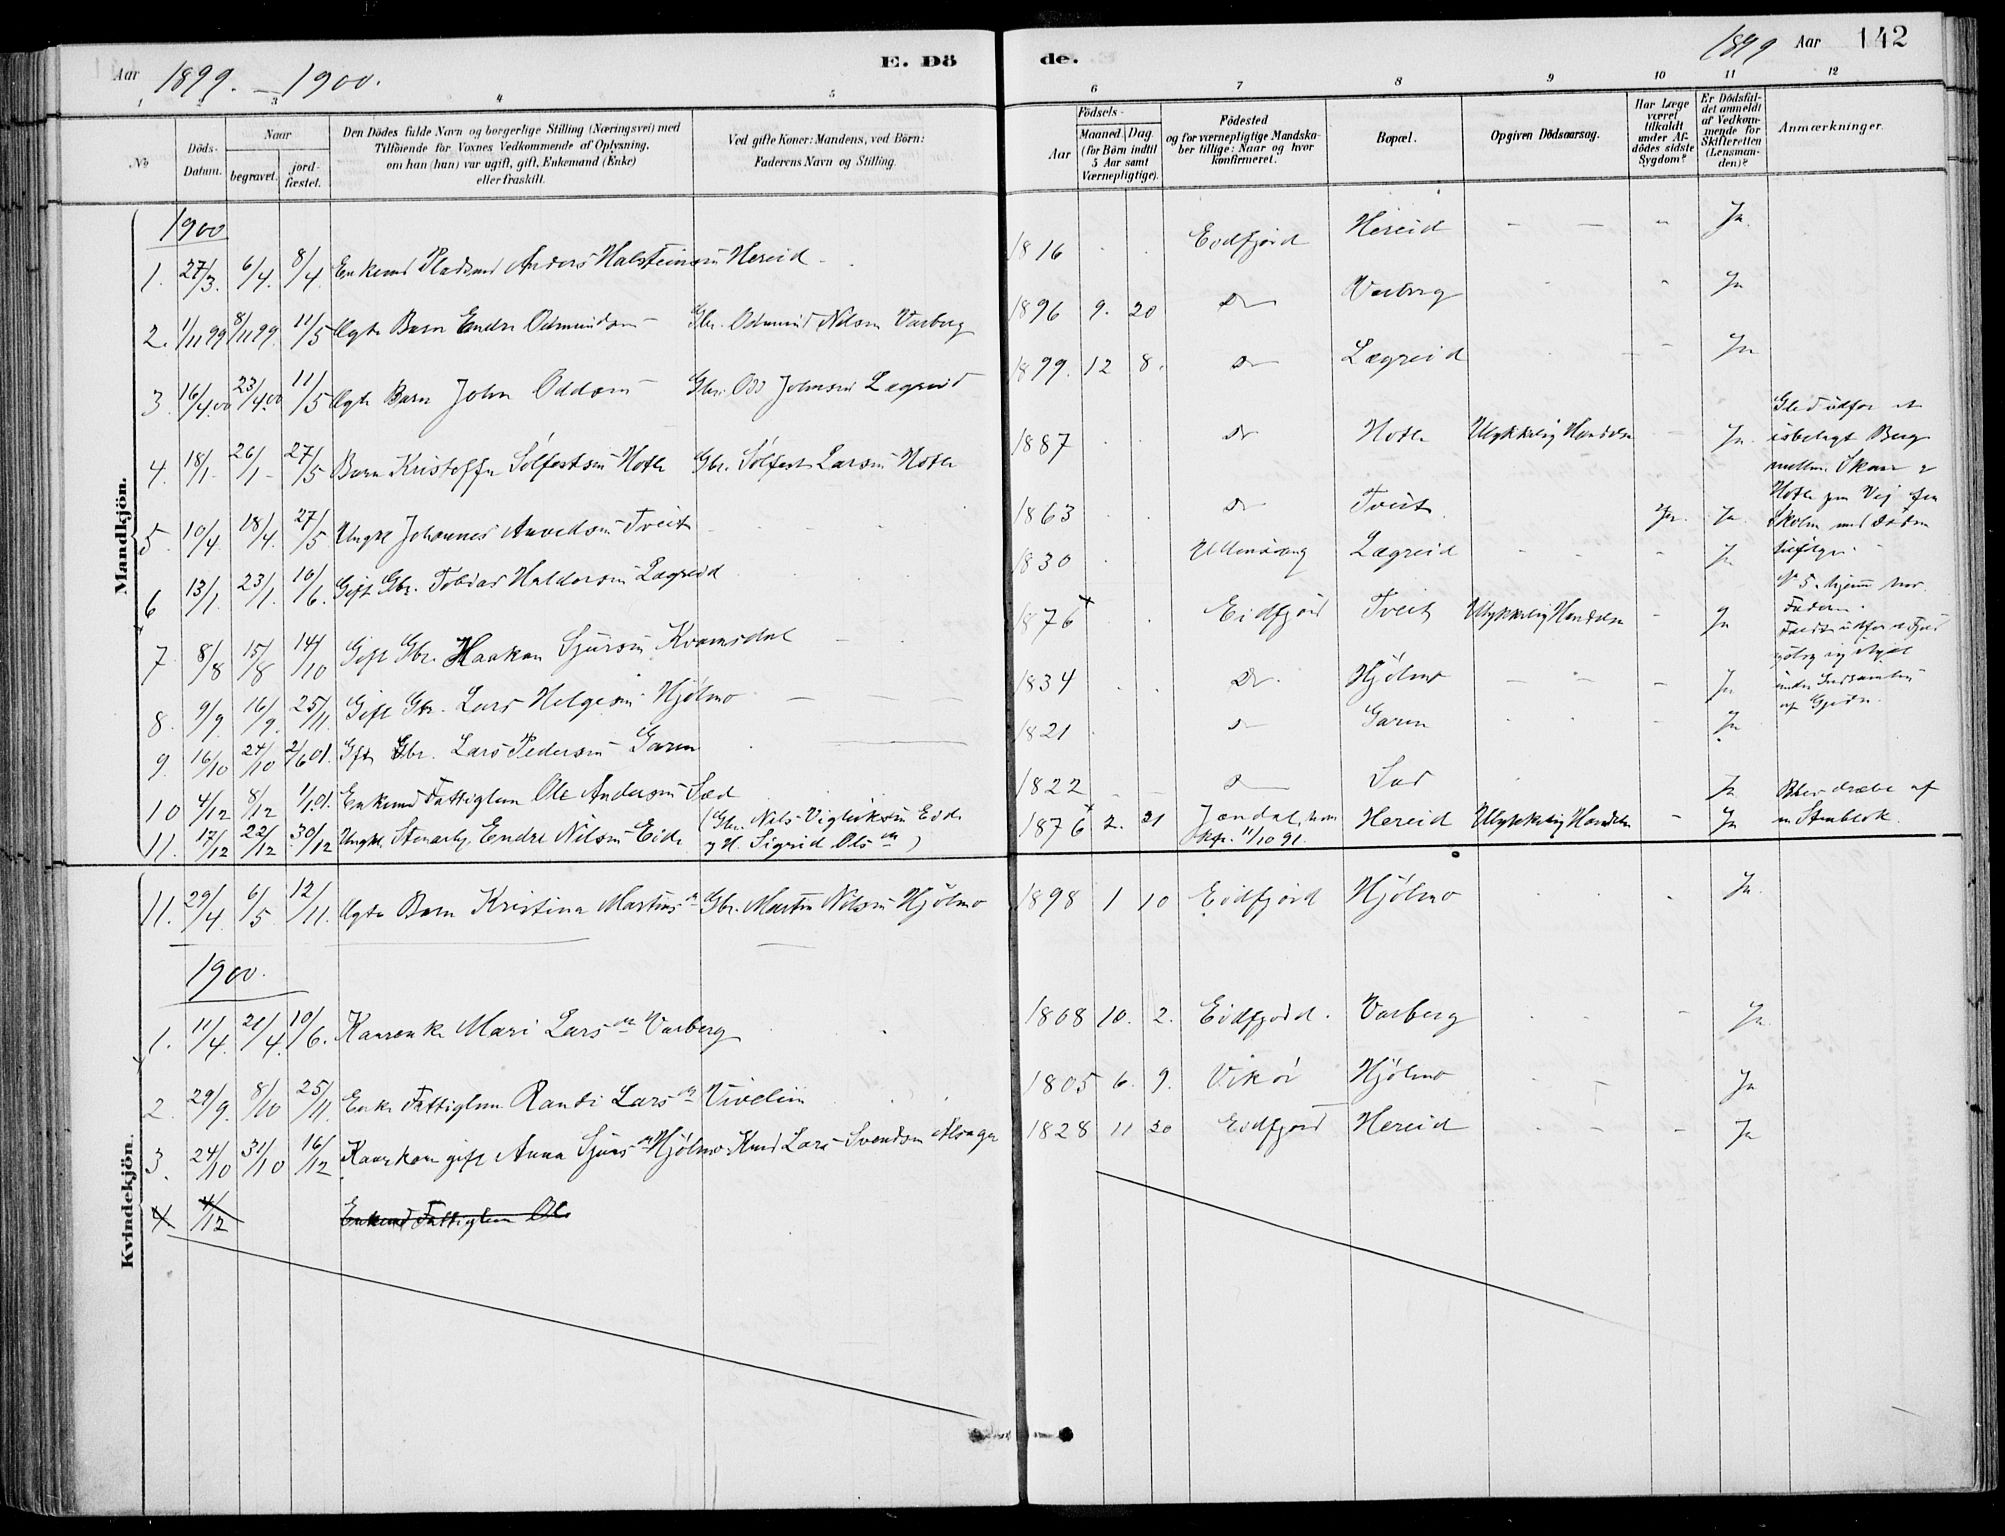 Aar 1899. – 1900.
E. Dö
de.
1899 Aar 142
1 2 3 4 5
6 7 8 9 10 11 12
No
Döds-
Datum.
Naar
begravet.
jord-
fæstet.
Den Dödes fulde Navn og borgerlige Stilling (Næringsvei) med
Tilföiende for Voxnes Vedkommende af Oplysning,
om han (hun) var ugift, gift, Enkemand (Enke)
eller fraskilt.
Ved gifte Koner: Mandens, ved Börn:
Faderens Navn og Stilling.
Födsels-
Aar
Maaned Dag
(for Börn indtil
5 Aar samt
Værnepligtige).
Födested
og for værnepligtige Mandska-
ber tillige: Naar og hvor
konfirmeret.
Bopæl.
Opgiven Dödsaarsag.
Har Læge
været
tilkaldt
under Af-
dödes sidste
Sygdom?
Er Dödsfal-
det anmeldt
af Vedkom-
mende for
Skifteretten
(Lensman-
den)?
Anmærkninger.
Mandkjön.
1900
1. 27/3. 6/4. 8/4. Enkemd Pladsmd Anders Halsteinsen Hereid 1816 Eidfjord Hereid Ja.
2. 1/11 99 8/11 99. 11/5 Ægte Barn Endre Odmundsen Gbr. Odmund Nilsen Varberg 1896 9. 20 Do Varberg Ja
3. 16/4.00 23/4.00 11/5 Ægte Barn John Oddsen Gbr. Odd Johnsen Lægreid 1899. 12 8. Do Lægreid Ja
4. 18/1. 26/1 27/5 Barn Kristoffer Solfestsen Hotle Gbr. Solfest Larsen Hotle 1887 Do Hotle Ulykkelig Hændelse Ja.
Gled udfor et
isbelagt Berg
mellem Skaar &
Hotle paa Vej fra
Skolen med Døden
tilfølge.
5. 10/4. 18/4. 27/5 Ungk. Johannes Anvedsen Tveit 1863 Do Tveit. Ja. Ja.
No 5. hjemme hos
Faderen.
6 13/1. 23/1. 10/6. Gift Gbr. Tobias Haldorsen Lægreid 1830 Ullensvang Lægreid Ja
7. 8/8 15/8 14/10 Gift Gbr. Haakon Sjursen Kvamsdal 1876 Eidfjord Tveit Ulykkelig Hændelse Ja
8. 9/9. 16/9. 25/11. Gift Gbr. Lars Helgesen Hjølmo 1834 Do. Hjølmo Ja
9. 16/10 24/10 2/6 01. Gift Gbr. Lars Pedersen Garen 1821 Do Garen Ja
10 4/12 8/12 1/1.01. Enkemd Fattiglem Ole Andersen Sæd 1822 Do Ja
11. 17/12 22/12 30/12 Ungk. Stenarb. Endre Nilsen Eide (Gbr. Nils Vigleiksen Eide
& H. Sigrid Olsdr) 1876 2. 21 Jondal, hvor Hereid Ulykkelig Hændelse Ja
Kfr. 11/10 91.
Blev dræbt af
en Stenblok.
11. 29/4. 6/5. 12/11. Ægte Barn Kristina Martinsdr Gbr. Martin Nilsen Hjølmo 1898 1 10 Eidfjord Hjølmo Ja.
Kvindekjön.
1900.
1. 11/4. 21/4. 10/6. Kaarenke Mari Larsdr Varberg 1808 10. 2. Eidfjord. Varberg Ja.
2. 29/9. 8/10 25/11. Enke Fattiglem Randi Larsdr Viveliin 1805 6. 9. Vikør Hjølmo Ja
3. 24/10 31/10 16/12 Kaarkone gift Anna Sjursdr Hjølmo Kmd Lars Svendsen 1828 11 30 Eidfjord Hereid Ja
4 4/12 Enkemd Fattiglem Ole